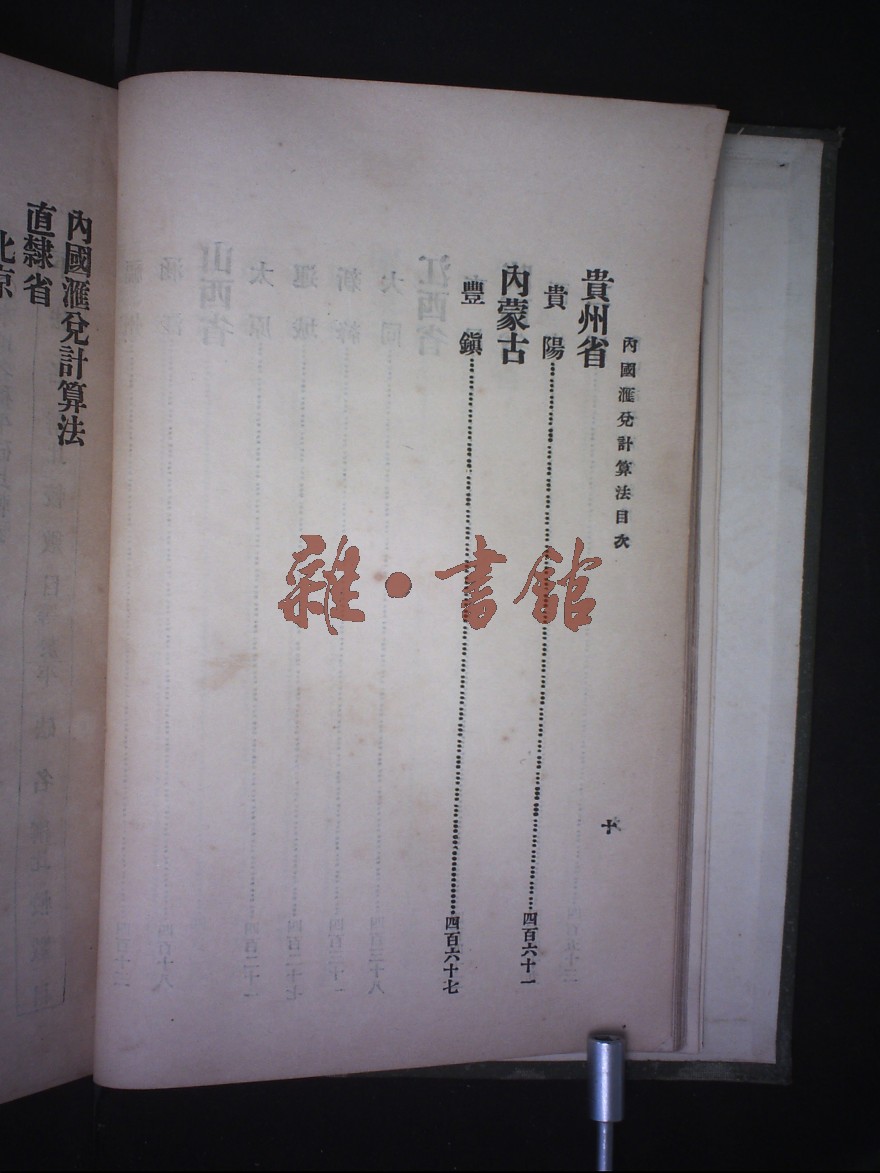 內國滙兌計算法目次
十
貴州省
貴陽……四百六十一
內蒙古
豐鎭……四百六十七
內國滙兌計算法
直隸省
北京
雜·書館